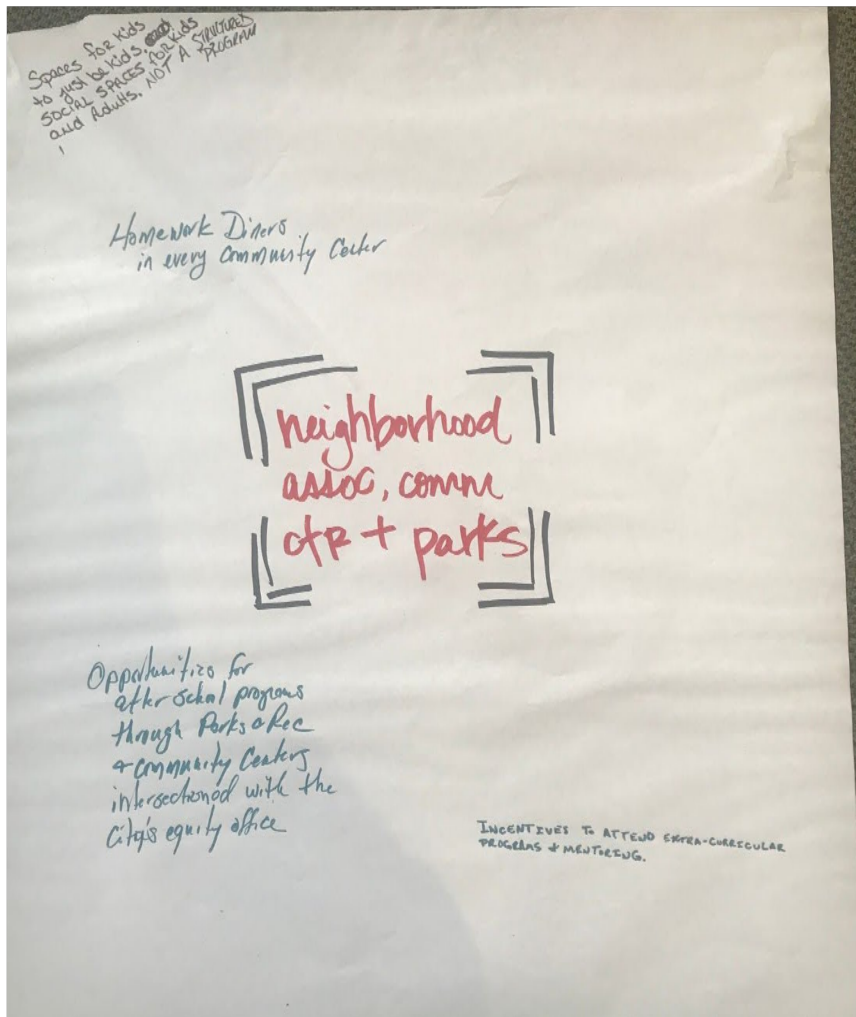 Spaces for Kids
to just be kids,
SOCIAL SPACES for Kids
and Adults, NOT A STRUCTURED
PROGRAM
Homework Diners
in every Community Center
neighborhood
assoc, comm
ctr + parks
Opportunities for
after school programs
through Parks & Rec
+ Community Centers
intersectioned with the
City's equity office
INCENTIVES TO ATTEND EXTRA-CURRICULAR
PROGRAMS & MENTORING.